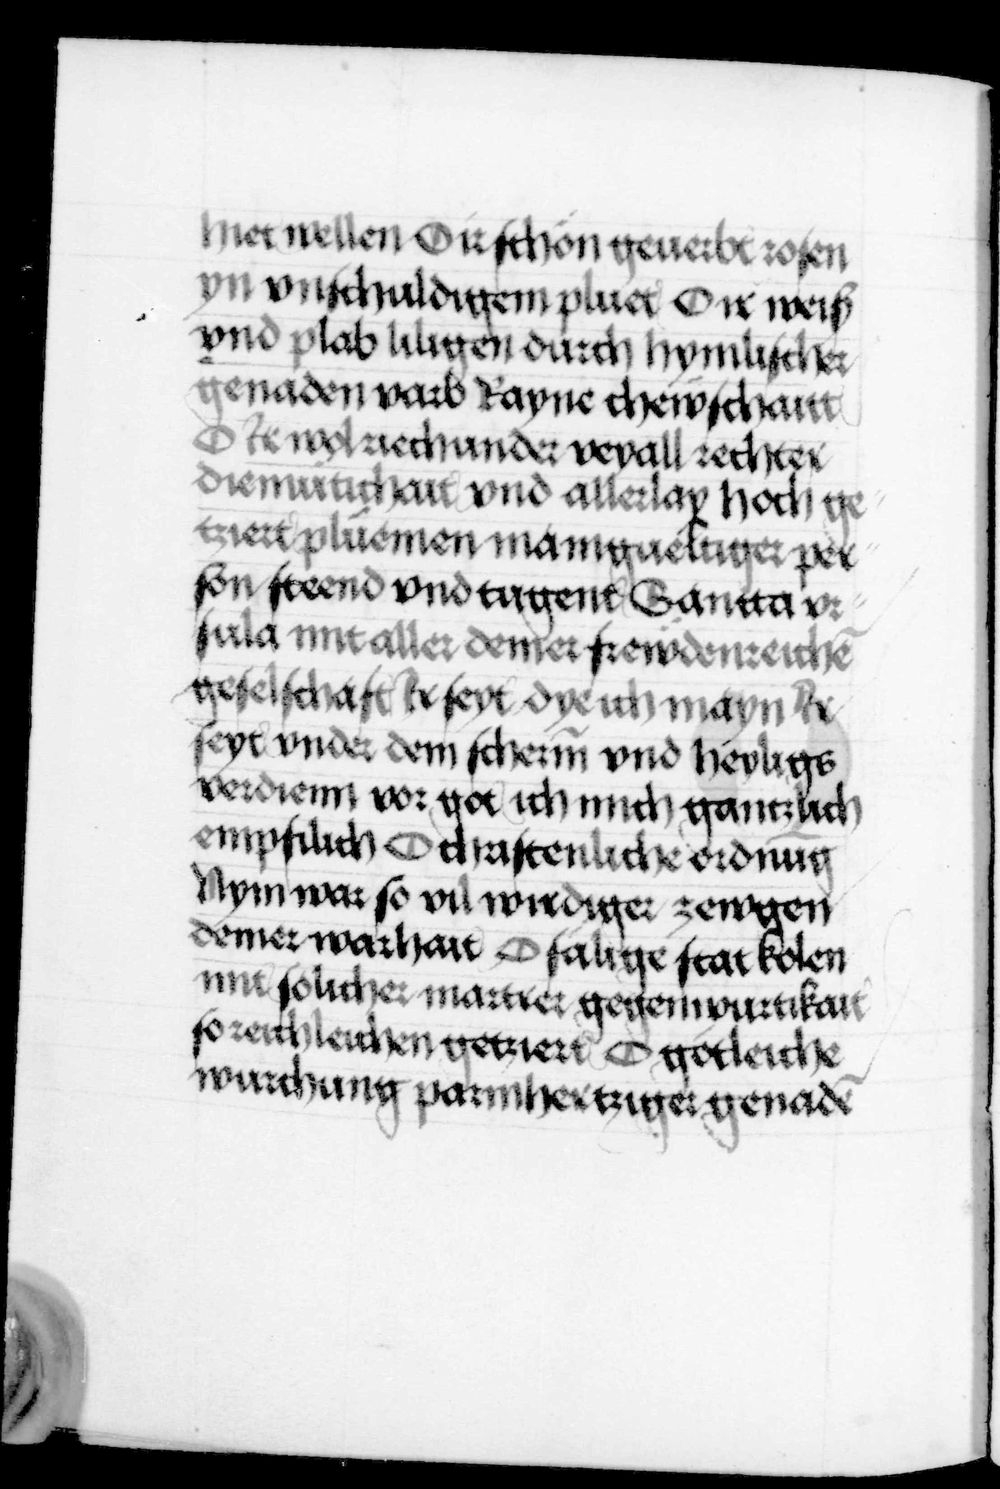 hiet wellen O ir schön geuerbt rosen
yn vnschuldigem pluet O ir weiß
vnd plab liligen durch hymlischer
genaden varb Rayne chewschaitt
O Ir wol riechunder veyall rechter
diemütichait vnd allerlay hoch ge-
tziert plüemen manigueltiger per-
son steend vnd tugent Sancta vr-
sula mit aller deiner frewdenreichē
geselschaft Ir seyt dye ich mayn Ir
seyt vnder dem scherm̄ vnd heyligs
verdienn vor got ich mich gantzlich
empfilich O christenliche ordnūg
Nym war so vil wirdiger zewgen
deiner warhait O sälige stat kölen
mit solicher martrer gegenwurtikait
so reichleichen getziert O götleiche
wurchung parmhertziger genadē